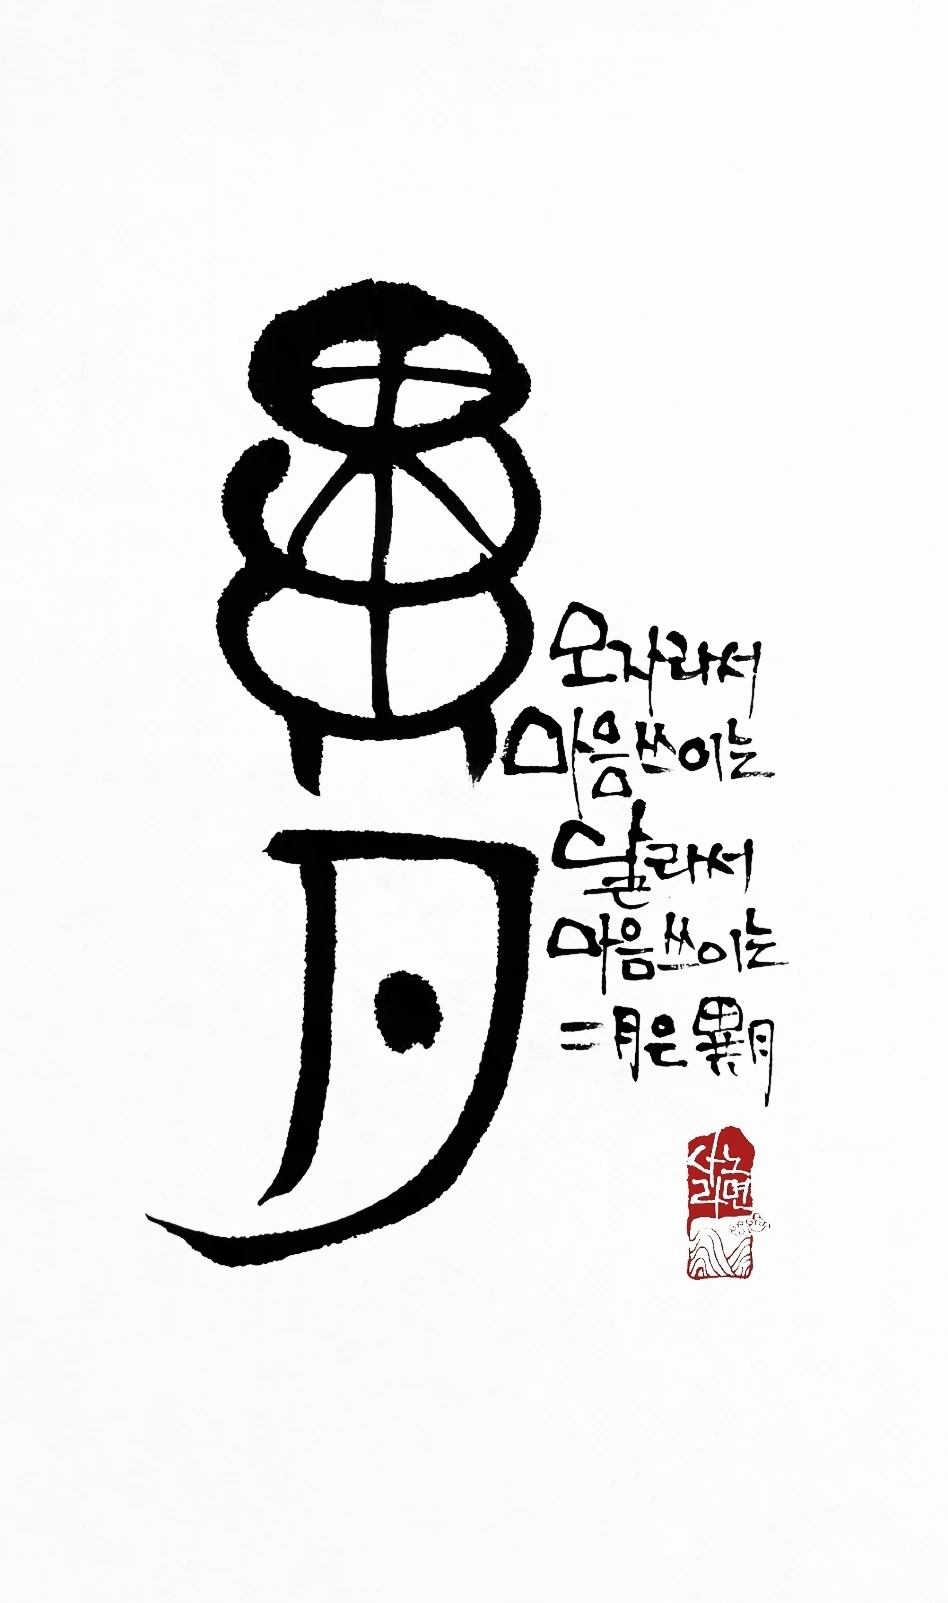 異月
모자라서
마음쓰이는
달라서
마음쓰이는
二月은 異月
사노
라면